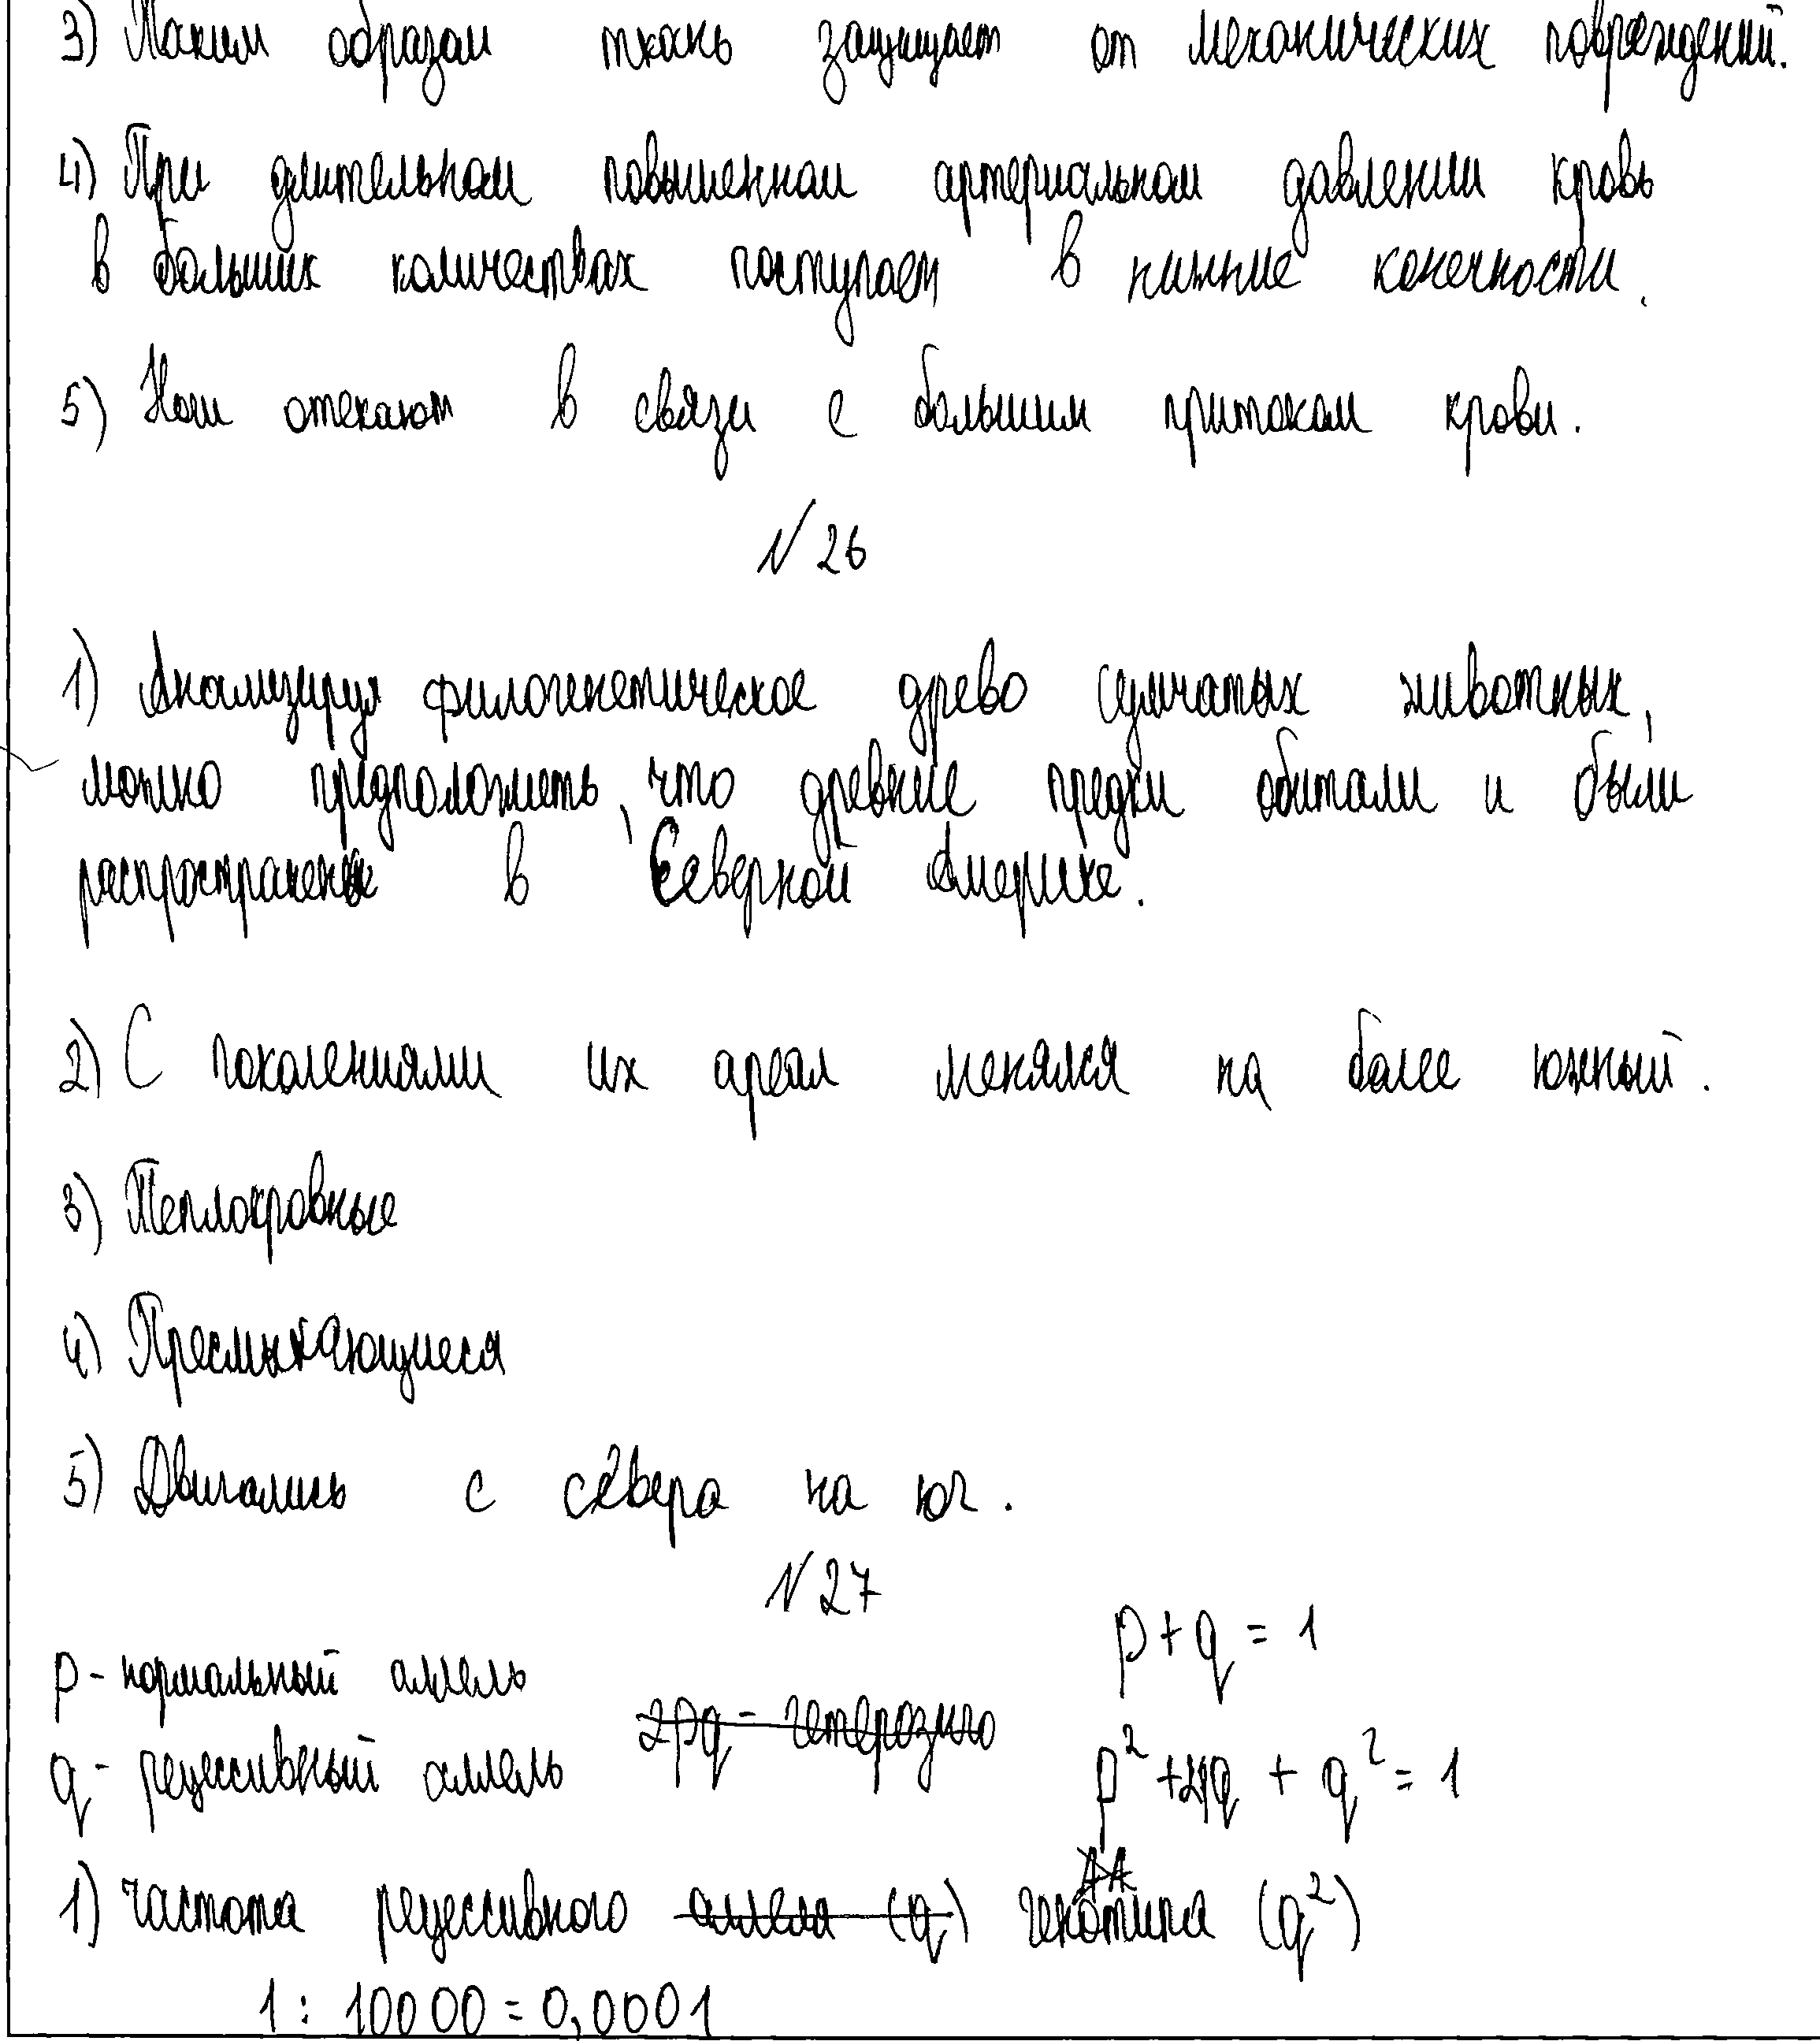 3) Таким образом ткань защищает от механических повреждений.
4) При длительном повышенном артериальном давлении кровь
в больших количествах поступает в нижние конечности.
5) Ноги отекают в связи с большим притоком крови.
№ 26
1) Анализируя филогенетическое древо сумчатых животных,
можно предположить, что древние предки обитали и были
распространены в Северной Америке.
2) С поколениями их ареал менялся на более южный.
3) Теплокровные
4) Пресмыкающиеся
5) Двигались с севера на юг.
№ 27
p + q = 1
p - нормальный аллель
2pq - гетерозиго
q - рецессивный аллель
p² + 2pq + q² = 1
AA
1) частота рецессивного аллеля (q) генотипа (q²)
1 : 10000 = 0,0001